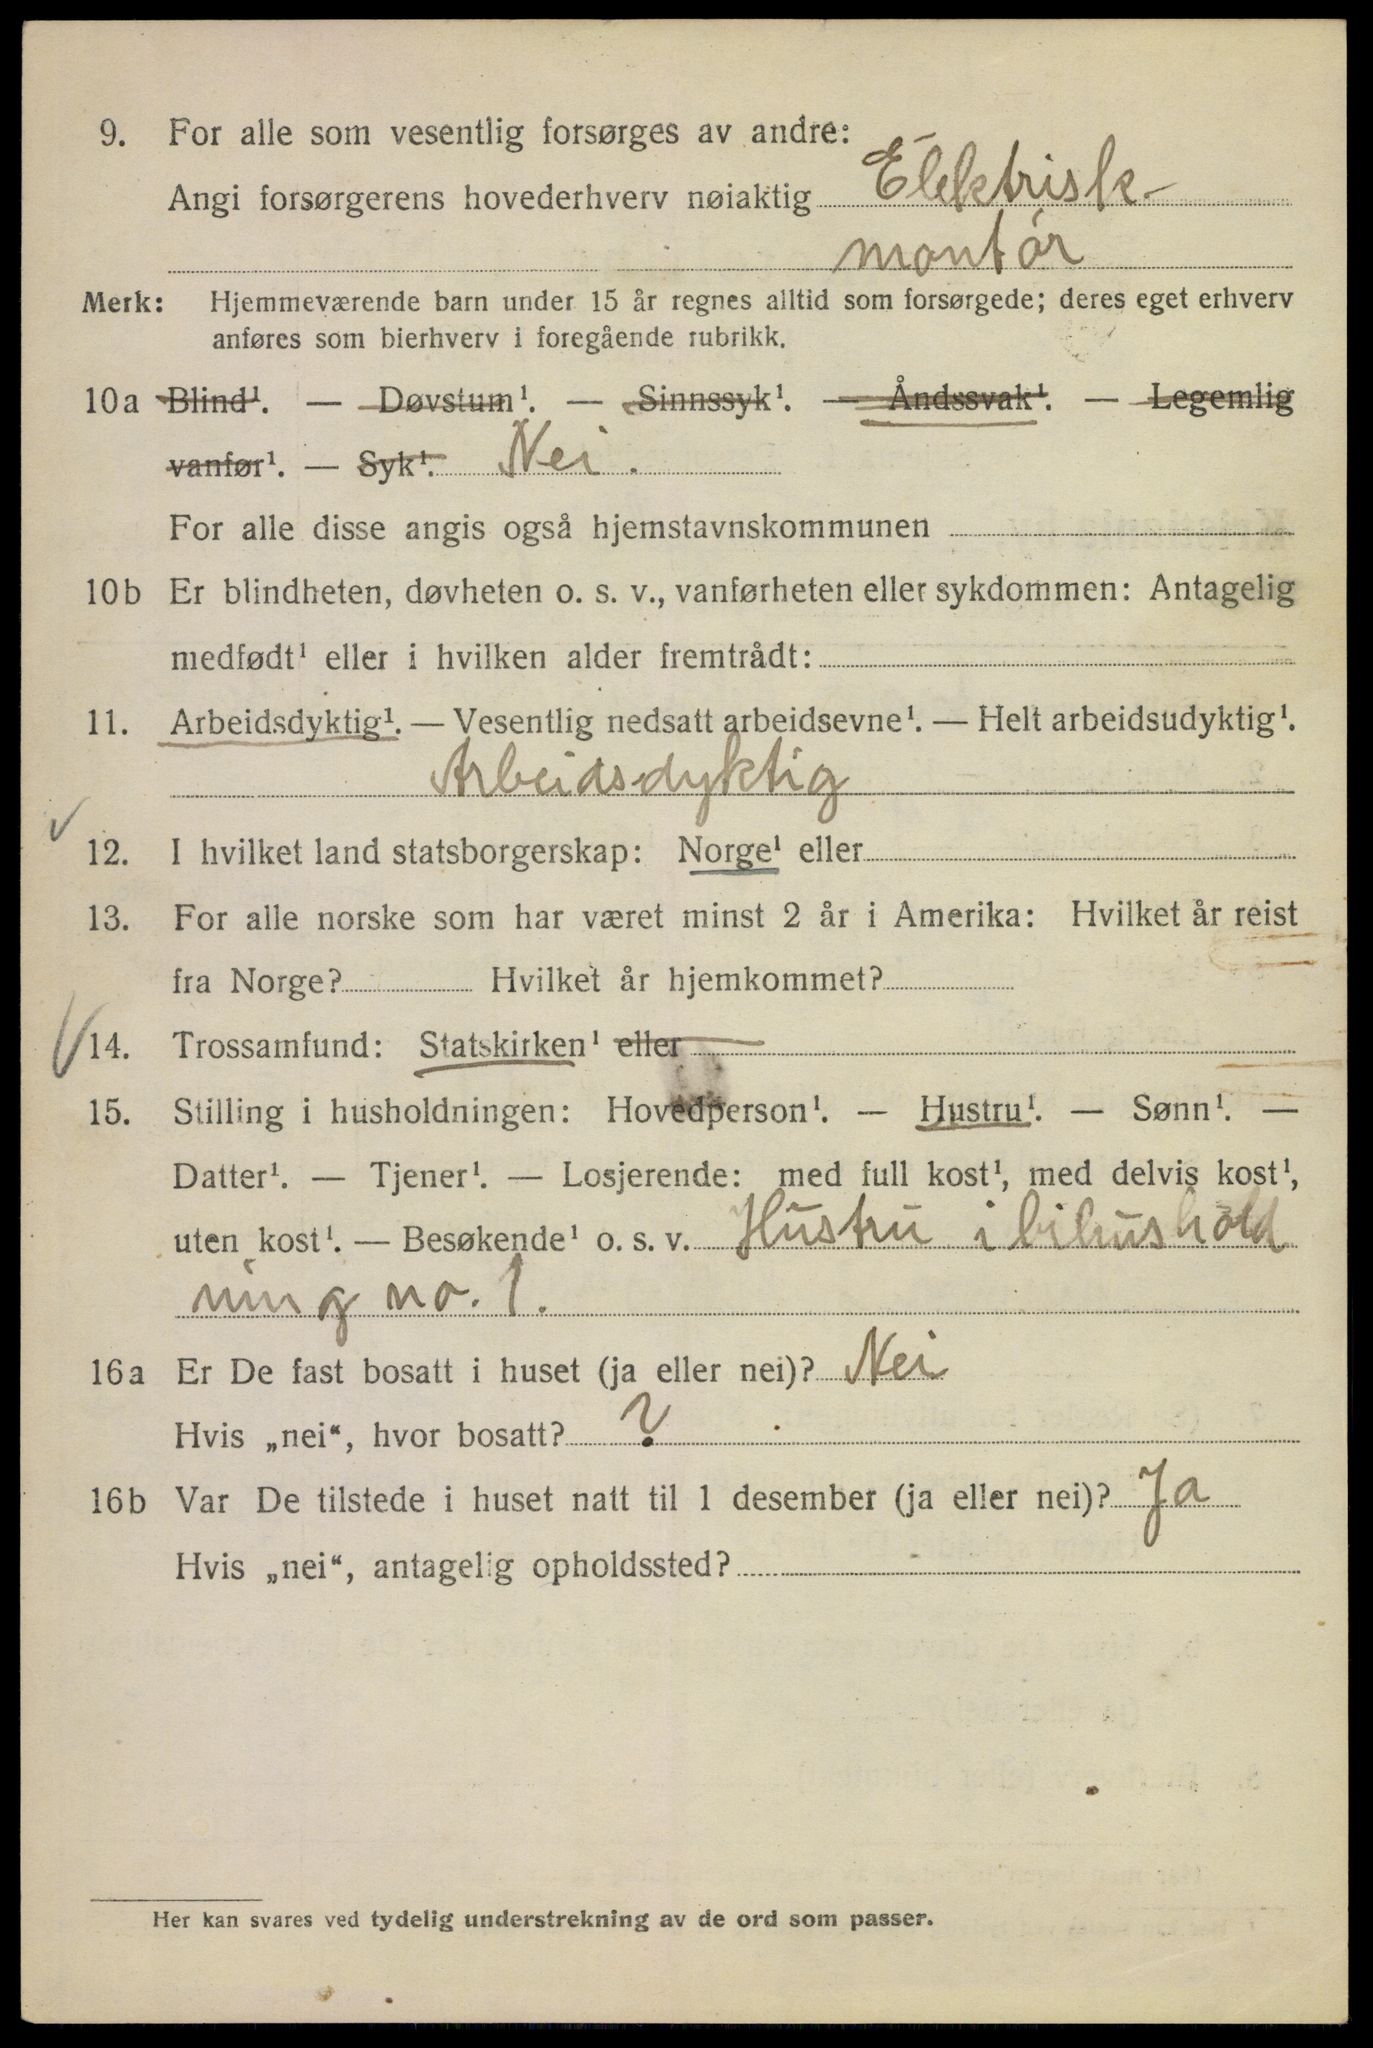 9. For alle som vesentlig forsørges av andre:
Angi forsørgerens hovederhverv nøiaktig Elektrisk-
montör
Merk: Hjemmeværende barn under 15 år regnes alltid som forsørgede; deres eget erhverv
anføres som bierhverv i foregående rubrikk.
10a Blind¹. — Døvstum¹. — Sinnssyk¹. — Åndssvak¹. — Legemlig
vanfør¹. — Syk¹. Nei.
For alle disse angis også hjemstavnskommunen
10b Er blindheten, døvheten o. s. v., vanførheten eller sykdommen: Antagelig
medfødt¹ eller i hvilken alder fremtrådt:
11. Arbeidsdyktig¹. — Vesentlig nedsatt arbeidsevne¹. — Helt arbeidsudyktig¹.
Arbeidsdyktig
12. I hvilket land statsborgerskap: Norge¹ eller
13. For alle norske som har været minst 2 år i Amerika: Hvilket år reist
fra Norge? Hvilket år hjemkommet?
14. Trossamfund: Statskirken¹ eller
15. Stilling i husholdningen: Hovedperson¹. — Hustru¹. — Sønn¹. —
Datter¹. — Tjener¹. — Losjerende: med full kost¹, med delvis kost¹,
uten kost¹. — Besøkende¹ o. s. v. Hustru i bihushold
ning no. 1.
16a Er De fast bosatt i huset (ja eller nei)? Nei
Hvis „nei“, hvor bosatt? ?
16b Var De tilstede i huset natt til 1 desember (ja eller nei)? Ja
Hvis „nei“, antagelig opholdssted?
Her kan svares ved tydelig understrekning av de ord som passer.